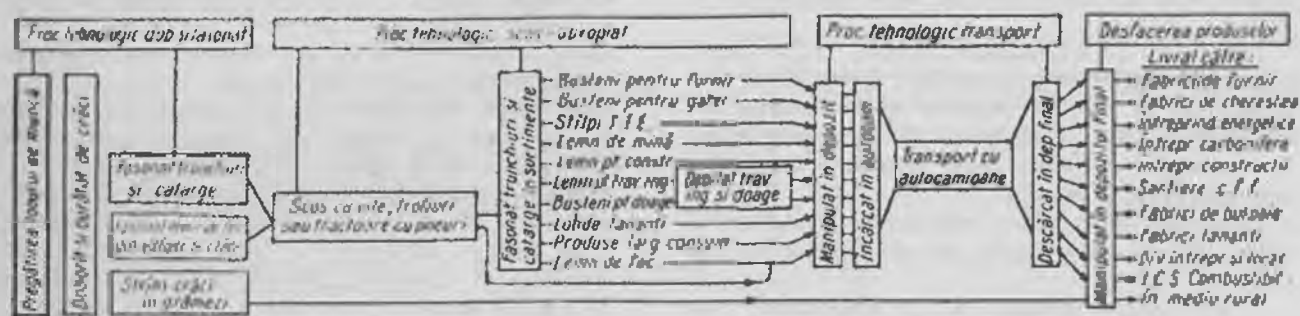 Proc tehnologic dob si fasonat
Proc tehnologic scos - apropiat
Proc. tehnologic transport
Desfacerea produselor
Livrat către:
Pregătirea locului de muncă
Doborît si curățat de crăci
Fasonat trunchiuri
si catarge
din vîrfuri si crăci
Strîns crăci
in grămezi
Scos cu vite, troliuri
sau tractoare cu pneuri
Fasonat trunchiuri si
catarge in sortimente
Busteni pentru furnir
Busteni pentru gater
Stîlpi
Lemn de mină
Lemn pt constr
Lemn pt trav ing
Busteni pt doage
Lobde tananti
Produse larg consum
Lemn de foc
Debitat trav
ing si doage
Manipulat in depozit
Incărcat in
Transport cu
autocamioane
Descărcat in dep final
Manipulat in depozitul final
Fabrici de furnir
Fabrici de cherestea
Intreprind energetice
Intrepr carbonifere
Intrepr constructii
Santiere c.f.f.
Fabrici de butoaie
Fabrici tananti
Div intrepr si locat
I C S Combustibil
În mediu rural